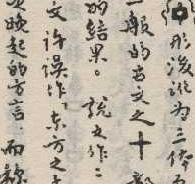 形後誤為三体
一般的古文之十
的結果。說文作二
文許誤作。东方之
晚起的方言。而